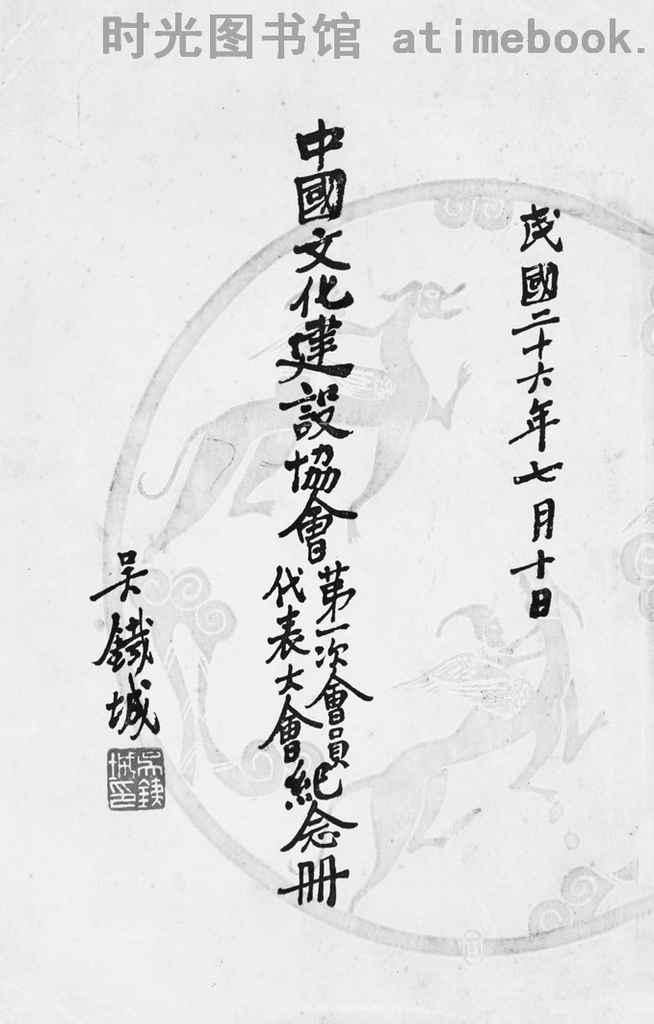 时光图书馆 atimebook.
民國二十六年七月十日
中國文化建設協會第一次會員代表大會紀念冊
吳鐵城
吳鐵城印